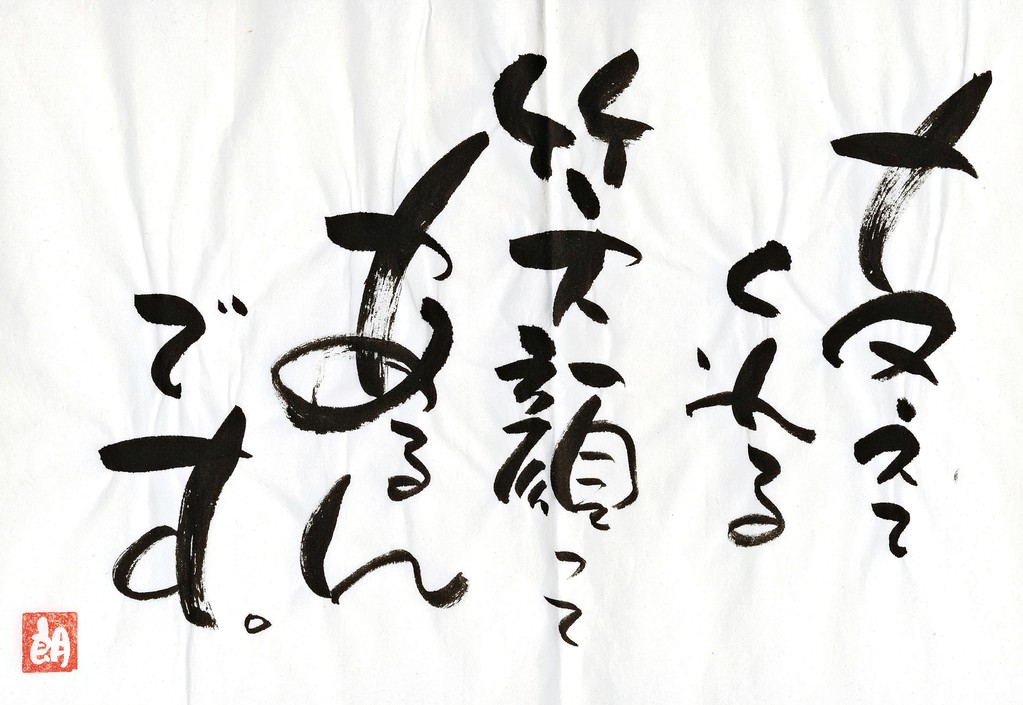 支えて
くれる
笑顔って
あるん
です。
朗